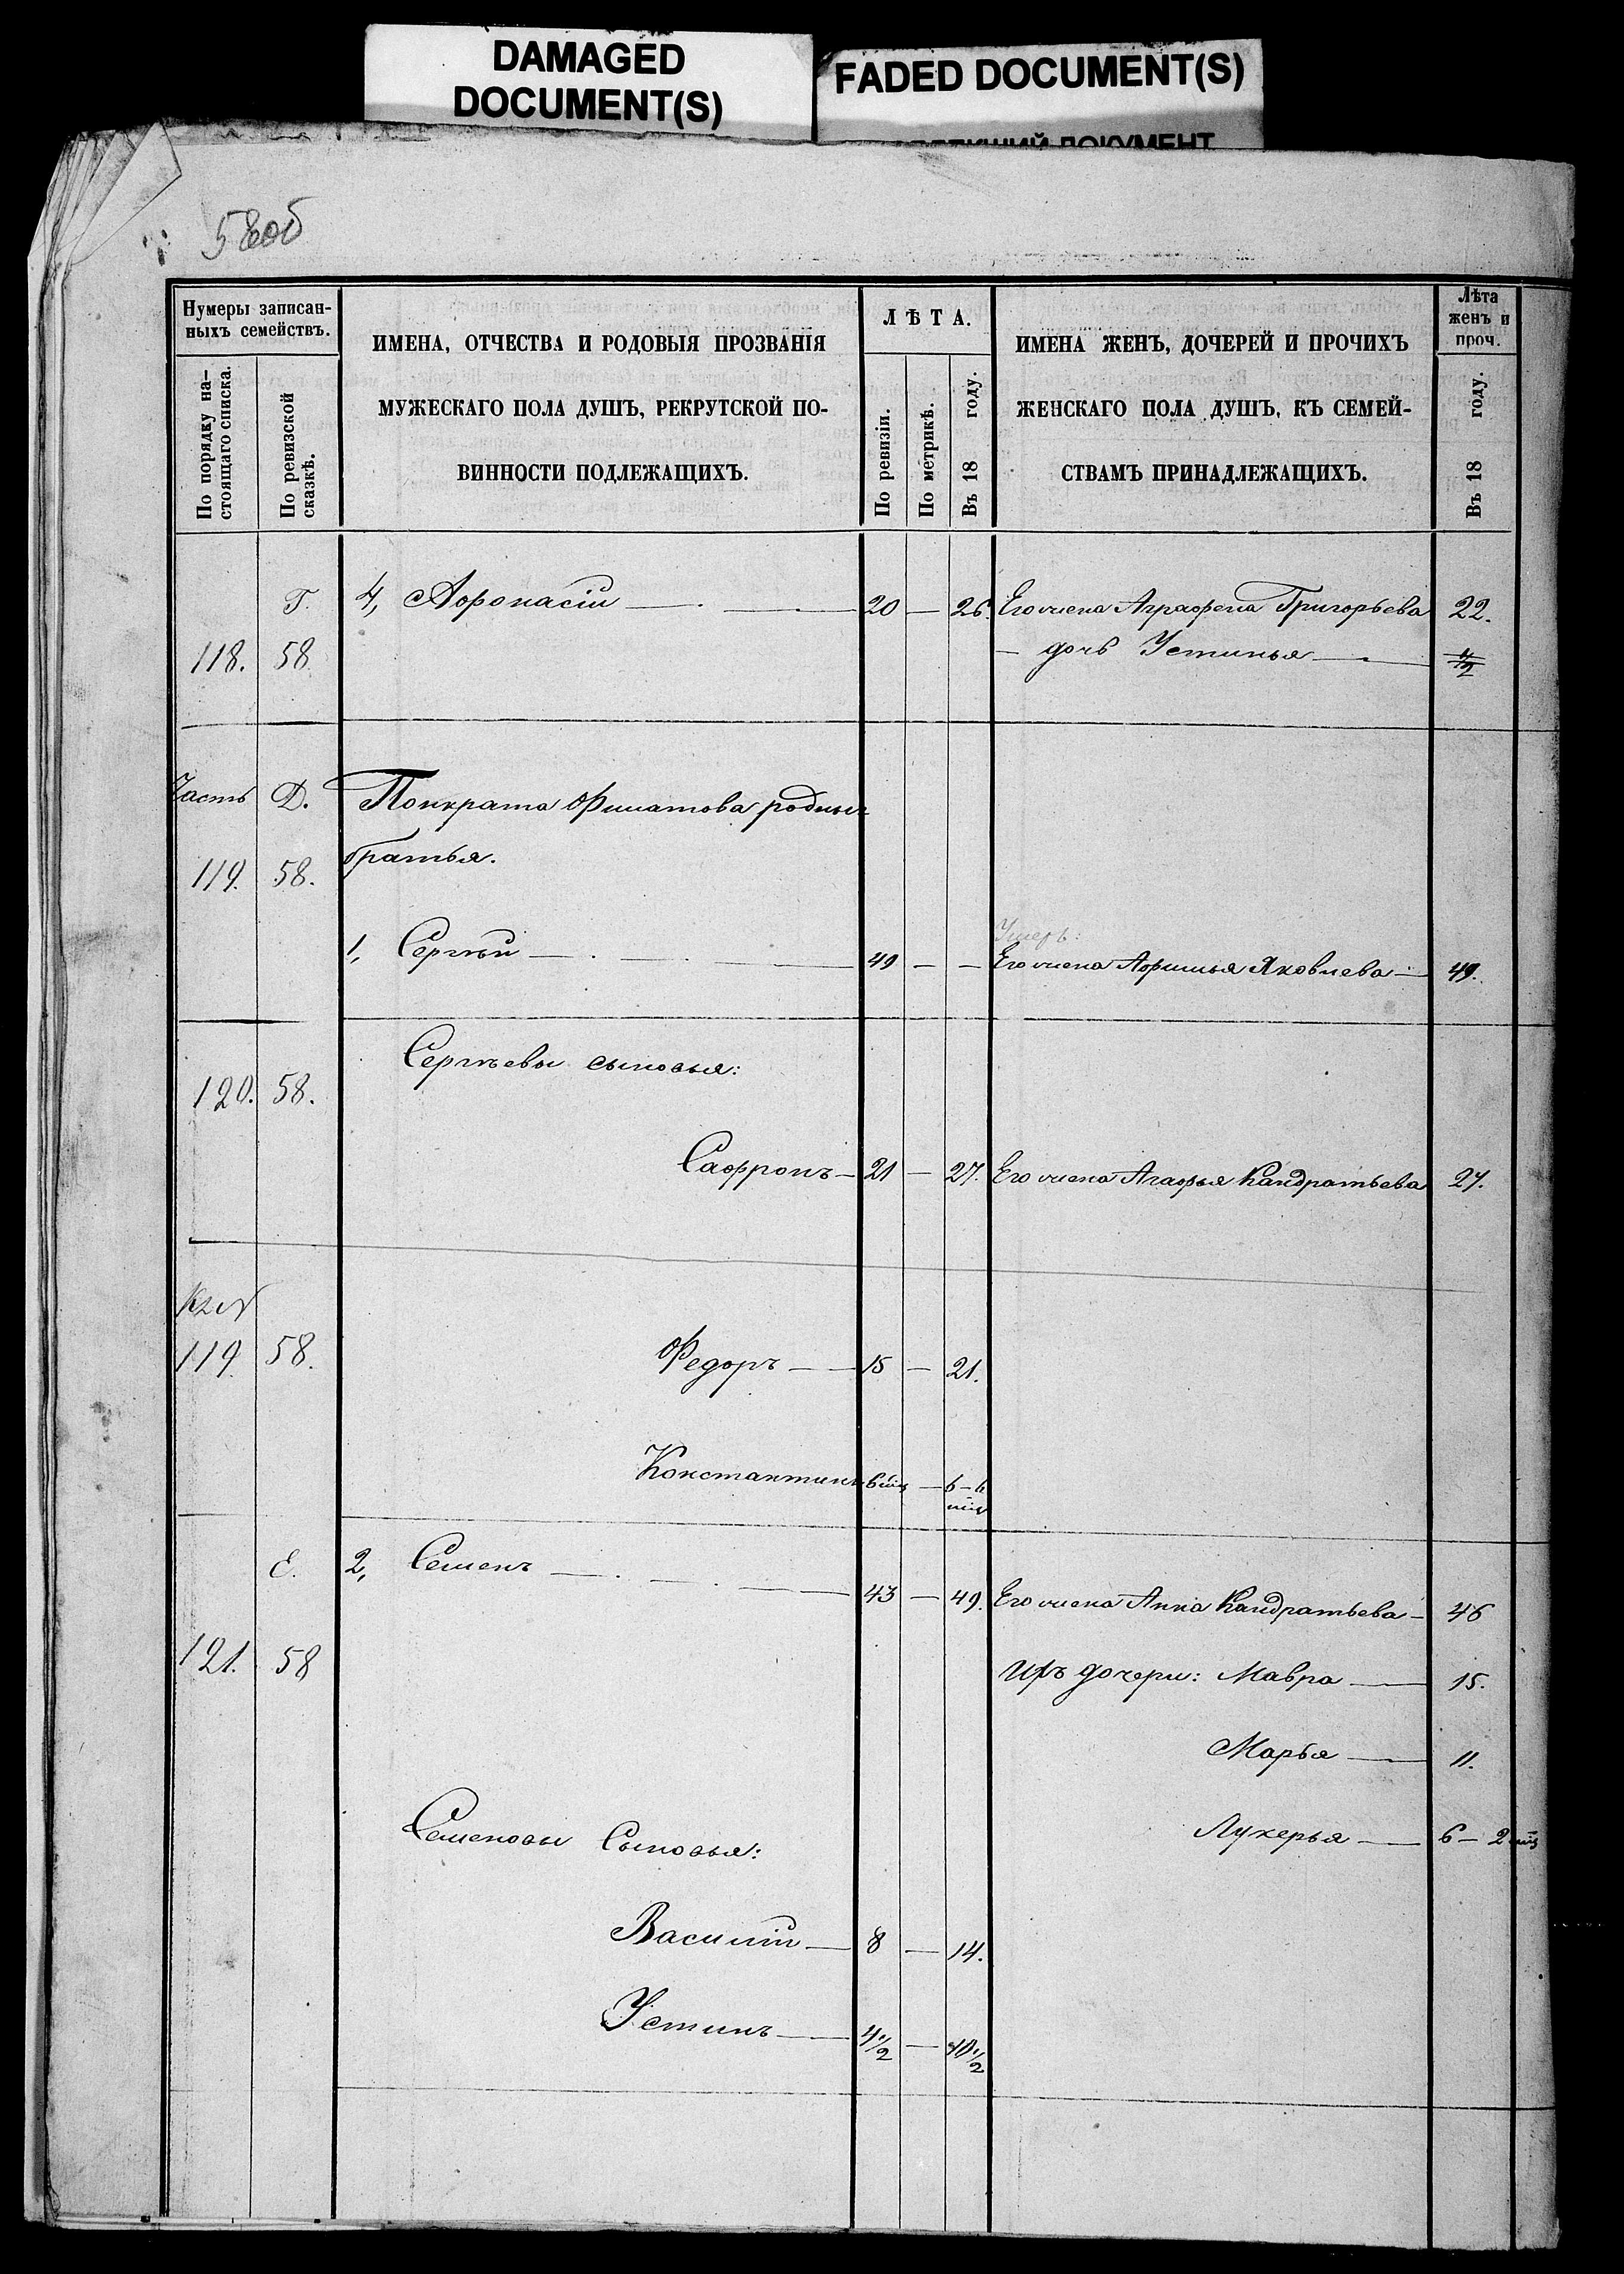 DAMAGED
DOCUMENT(S)
FADED DOCUMENT(S)
ДОКУМЕНТ
58 об
Нумеры записан-
ныхъ семействъ.
По порядку на-
стоящаго списка.
По ревизской
сказкѣ.
ИМЕНА, ОТЧЕСТВА И РОДОВЫЯ ПРОЗВАНІЯ
МУЖЕСКАГО ПОЛА ДУШЪ, РЕКРУТСКОЙ ПО-
ВИННОСТИ ПОДЛЕЖАЩИХЪ.
ЛѢТА.
По ревизіи.
По метрикѣ.
Въ 18 году.
ИМЕНА ЖЕНЪ, ДОЧЕРЕЙ И ПРОЧИХЪ
ЖЕНСКАГО ПОЛА ДУШЪ, КЪ СЕМЕЙ-
СТВАМЪ ПРИНАДЛЕЖАЩИХЪ.
Лѣта
женъ и
проч.
Въ 18 году.
Г. 4, Афонасій — 20 — 26. Его жена Аграфена Григорьева 22.
118. 58. — дочь Устинья — 1/2
Часть Д. Понкрата Филатова родные
братья.
119. 58.
Умеръ:
1, Сергѣй — 49 — — Его жена Афимья Яковлева — 49.
Сергѣевы сыновья:
120. 58.
Сафронъ — 21 — 27. Его жена Агафья Кандратьева 27.
Къ №
119 58. Федоръ — 15 — 21.
Константинъ 6 мц — 6 – 6
мц
Е. 2, Семенъ — 43 — 49. Его жена Анна Кандратьева — 46
121. 58 Ихъ дочери: Мавра — 15.
Марья — 11.
Семеновы Сыновья: Лукерья — 6 – 2 мц
Василій — 8 — 14.
Устинъ — 4 1/2 — 10 1/2